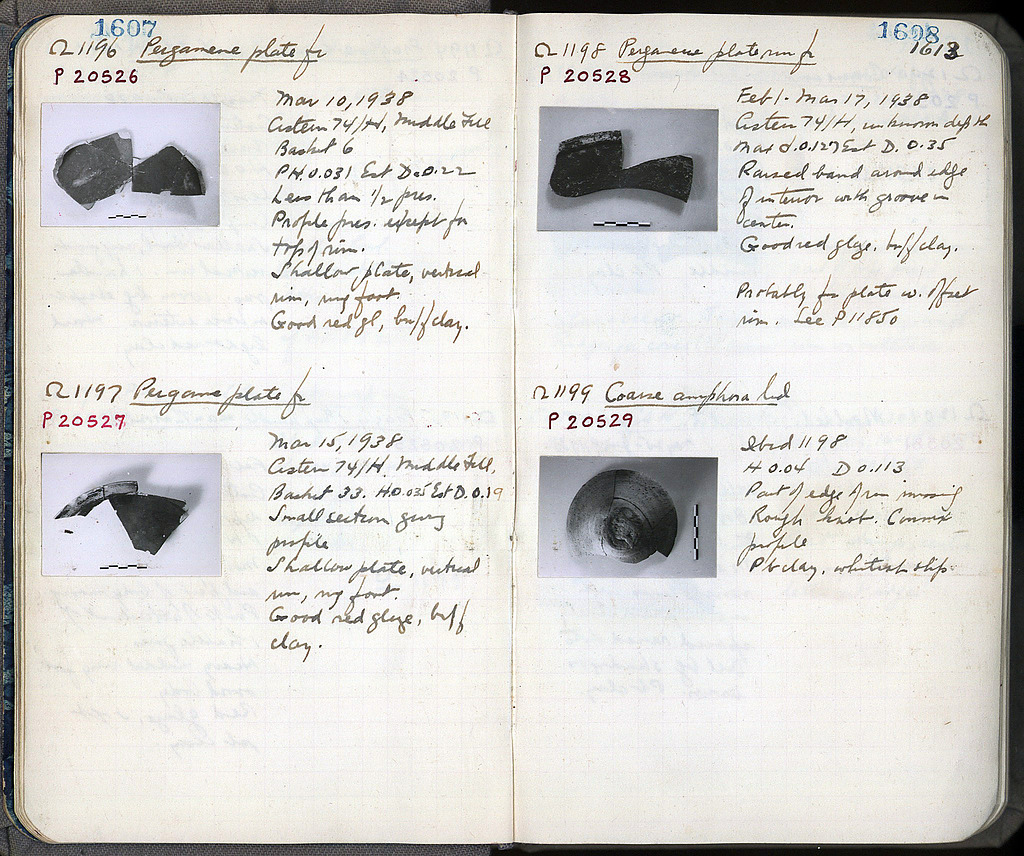 1607
Ω1196 Pergamene plate fr
P 20526
Mar 10, 1938
Cistern 74/H, Middle Fill
Basket 6
PH. 0.031 Est D. 0.22
Less than 1/2 pres.
Profile pres. except for
top of rim.
Shallow plate, vertical
rim, ring foot.
Good red gl, buff clay.
Ω1197 Pergame plate fr
P 20527
Mar 15, 1938
Cistern 74/H, Middle Fill,
Basket 33. H 0.035 Est D. 0.19
Small section giving
profile
Shallow plate, vertical
rim, ring foot.
Good red glaze, buff
clay.
1608
1613
Ω1198 Pergamene plate rim fr
P 20528
Feb 1 - Mar 17, 1938
Cistern 74/H, unknown depth
Max d. 0.127 Est D. 0.35
Raised band around edge
of interior with groove in
center.
Good red glaze. buff clay.
Probably fr plate w. offset
rim. See P 11850
Ω1199 Coarse amphora lid
P 20529
Ibid 1198
H 0.04 D 0.113
Part of edge of rim missing
Rough knob. Convex
profile
Pk clay, whitish slip